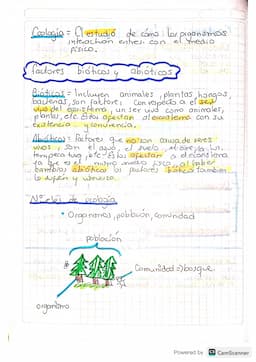 Ecología = El estudio de cómo los organismos
interactúan entre con el medio
físico.
factores bióticos y abióticos
Bióticos = Incluyen animales, plantas, hongos,
bacterias, son factores con respecto a el ser
vivo del ecosistema, un ser vivo como animales,
plantas, etc. Estos afectan al ecosistema con su
existencia y convivencia.
Abióticos = Factores que no son causa de seres
vivos, son el agua, el suelo, el aire, la luz,
temperatura, etc. Estos afectan a el ecosistema
ya que es el mismo medio físico, al haber
cambios abióticos los factores bióticos también
lo
Niveles de ecología
• Organismo, población, comunidad
población
Comunidad = bosque
organismo
Powered by CamScanner